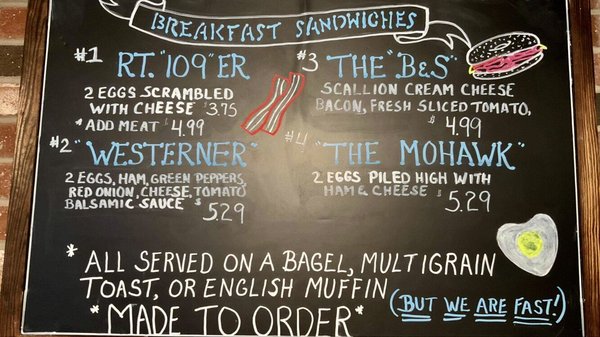 BREAKFAST SANDWICHES
#1 RT. "109" ER
2 EGGS SCRAMBLED
WITH CHEESE $3.75
* ADD MEAT $4.99
#2 "WESTERNER"
2 EGGS, HAM, GREEN PEPPERS,
RED ONION, CHEESE, TOMATO
BALSAMIC SAUCE $5.29
#3 THE "B&S"
SCALLION CREAM CHEESE
BACON, FRESH SLICED TOMATO,
$4.99
#4 "THE MOHAWK"
2 EGGS PILED HIGH WITH
HAM & CHEESE $5.29
* ALL SERVED ON A BAGEL, MULTIGRAIN
TOAST, OR ENGLISH MUFFIN
*MADE TO ORDER*
(BUT WE ARE FAST!)